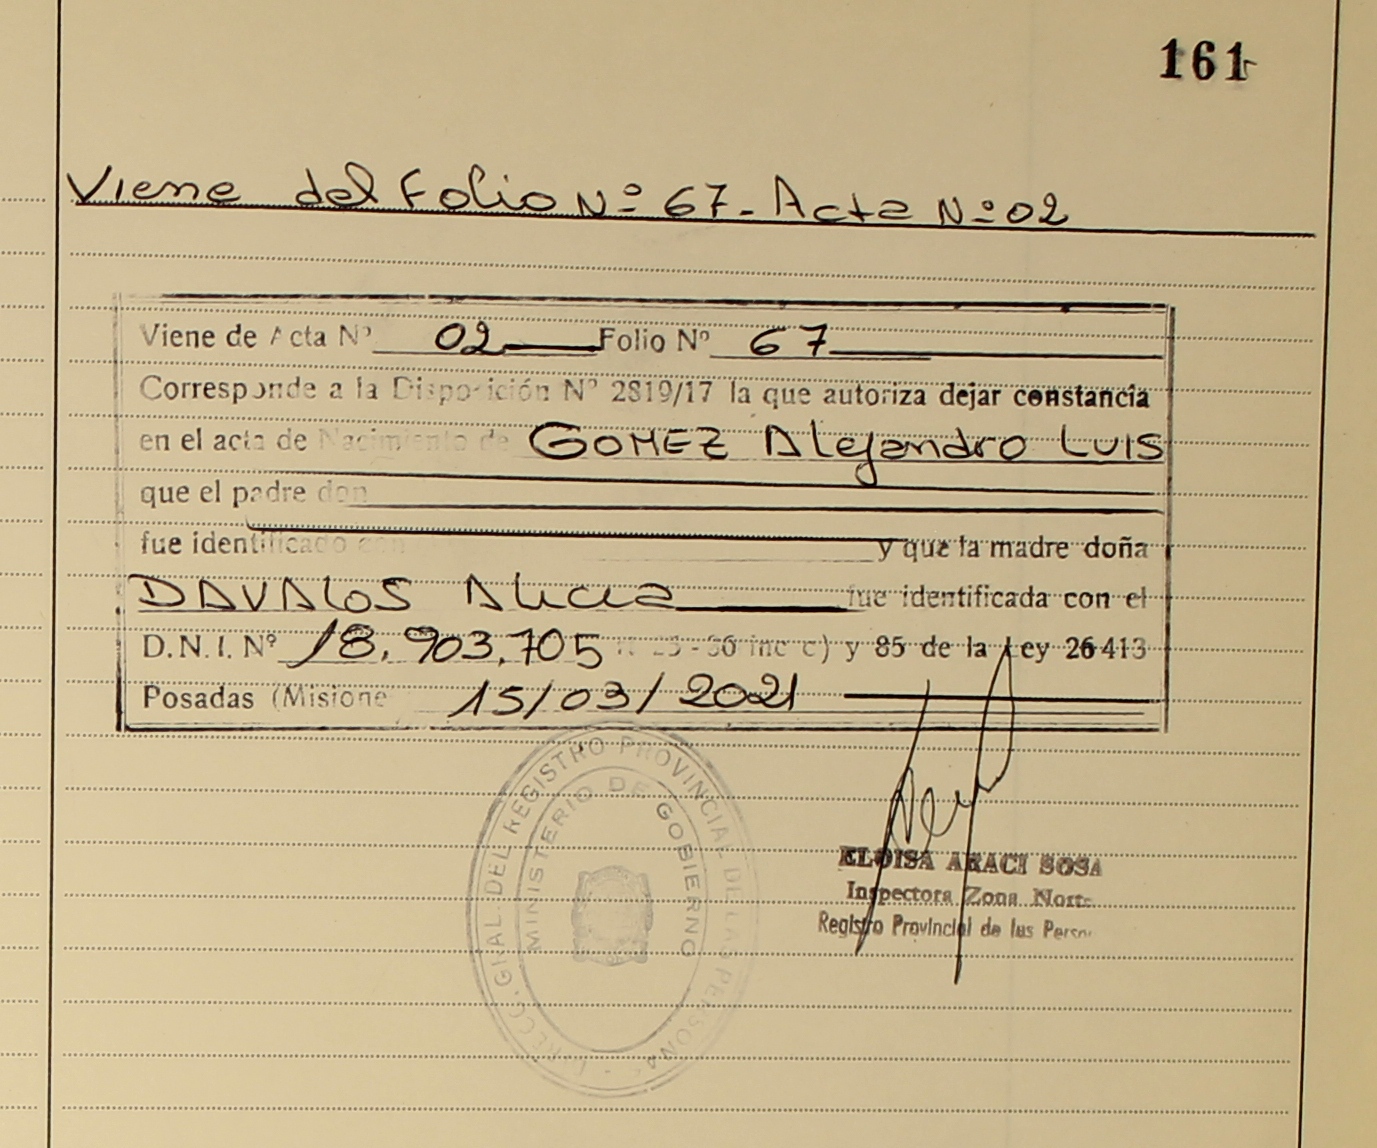 161
Viene del Folio Nº 67- Acta Nº 02
Viene de Acta Nº 02 Folio Nº 67
Corresponde a la Disposición Nº 2819/17 la que autoriza dejar constancia
en el acta de Nacimiento de GOMEZ Alejandro LUIS
que el padre don
fue identificado con y que la madre doña
DAVALOS Alicia fue identificada con el
D.N.I. Nº 18.903.705 y 85 de la Ley 26413
Posadas (Misione 15/03/2021
DIRECC. GRAL. DEL REGISTRO PROVINCIAL DE LAS PERSONAS
MINISTERIO DE GOBIERNO
ELOISA ARACI SOSA
Inspectora Zona Norte
Registro Provincial de las Perso